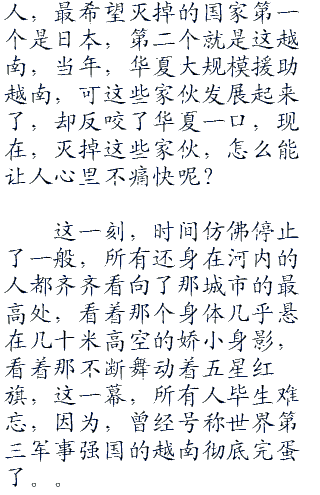 人，最希望灭掉的国家第一
个是日本，第二个就是这越
南，当年，华夏大规模援助
越南，可这些家伙发展起来
了，却反咬了华夏一口，现
在，灭掉这些家伙，怎么能
让人心里不痛快呢？
这一刻，时间仿佛停止
了一般，所有还身在河内的
人都齐齐看向了那城市的最
高处，看着那个身体几乎悬
在几十米高空的娇小身影，
看着那不断舞动着五星红
旗，这一幕，所有人毕生难
忘，因为，曾经号称世界第
三军事强国的越南彻底完蛋
了。。